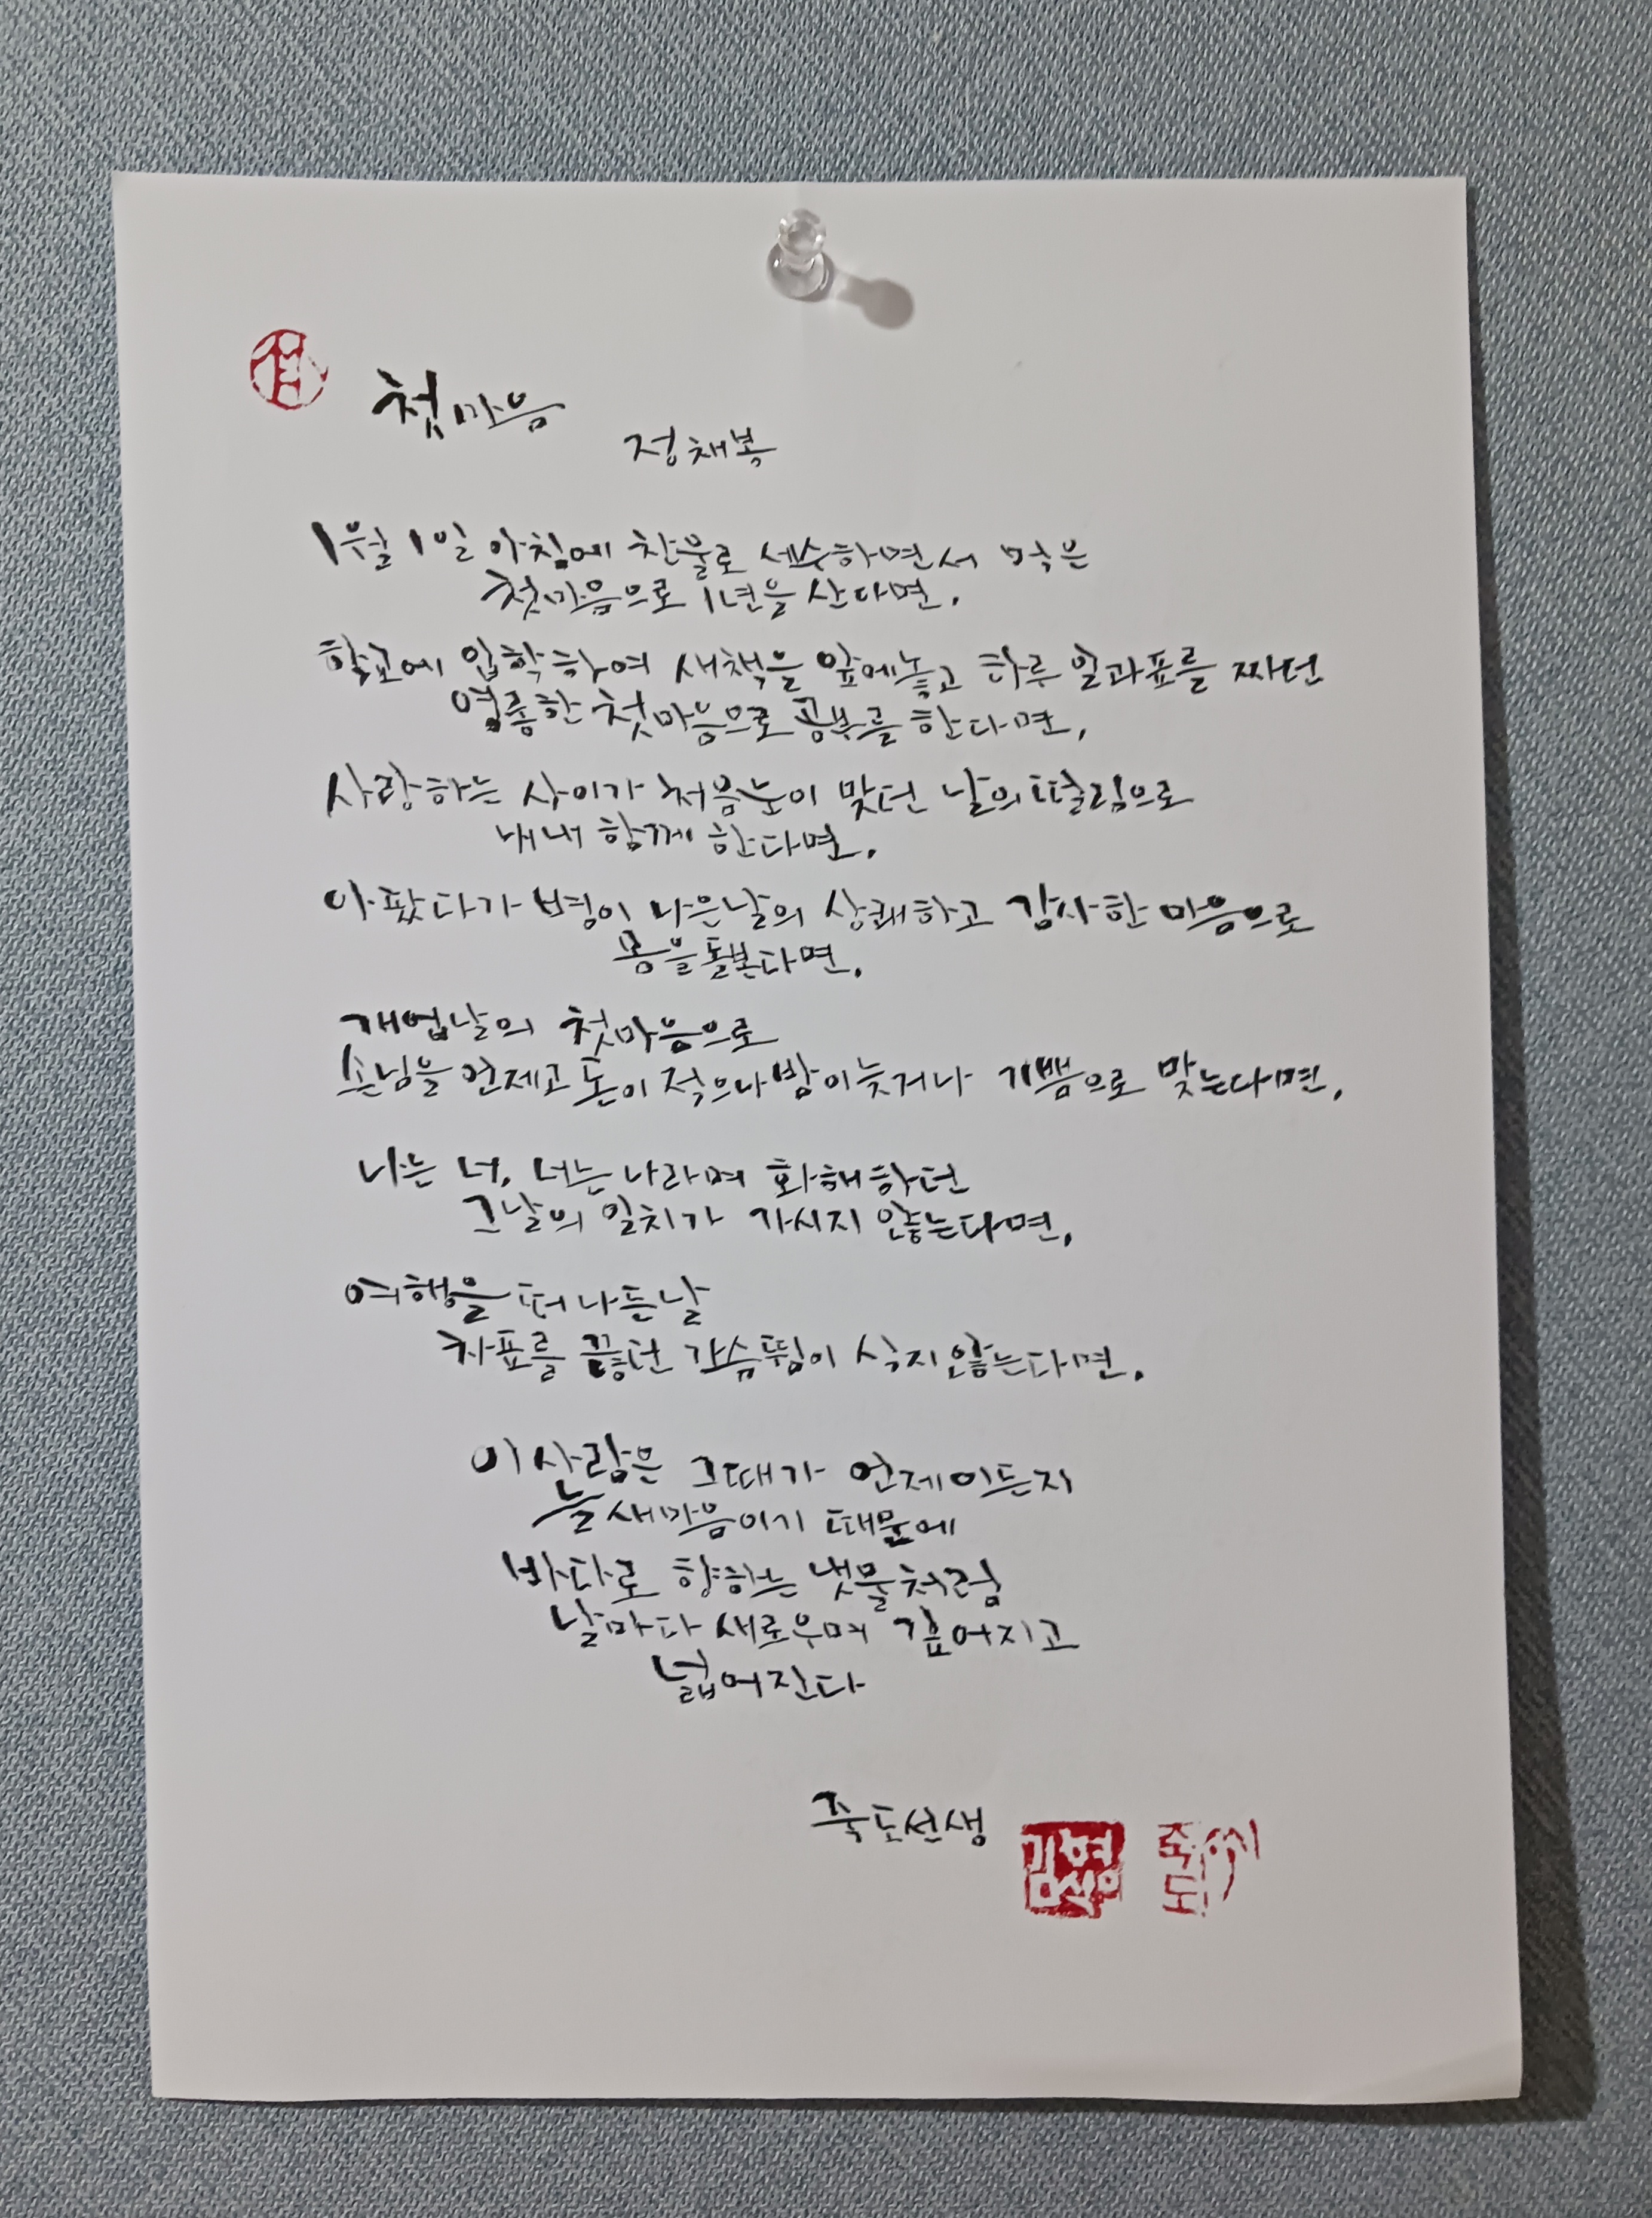 첫마음
정채봉
1월 1일 아침에 찬물로 세수하면서 먹은
첫마음으로 1년을 산다면,
학교에 입학하여 새책을 앞에놓고 하루 일과표를 짜던
영롱한 첫마음으로 공부를 한다면,
사랑하는 사이가 처음눈이 맞던 날의 떨림으로
내내 함께 한다면,
아팠다가 병이 나은날의 상쾌하고 감사한 마음으로
몸을 돌본다면,
개업날의 첫마음으로
손님을 언제고 돈이 적으나 밤이늦거나 기쁨으로 맞는다면,
나는 너, 너는 나라며 화해하던
그날의 일치가 가시지 않는다면,
여행을 떠나든날
차표를 끊던 가슴뜀이 식지않는다면,
이 사람은 그때가 언제이든지
늘 새마음이기 때문에
바다로 향하는 냇물처럼
날마다 새로우며 깊어지고
넓어진다
죽도선생
죽도